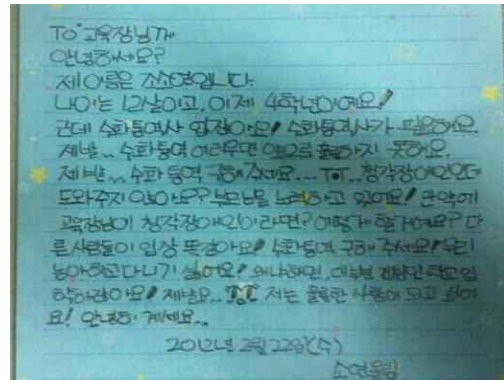 To 교육장님께
안녕하세요?
제 이름은 조소연입니다.
나이는 12살이고, 이제 4학년이에요!
근데 수화통역사 입장이요! 수화통역사가 필요해요.
제발.. 수화통역 어려우면 앞으로 훌륭하지 못해요.
제발.. 수화 통역 구해 주세요... ToT.. 청각장애인인데
도와주지 않아요? 부모님을 노력하고 있어요! 만약에
교육장님이 청각장애인이라면? 어떻게 할 거에요? 다
른 사람들이 입장 똑같아요! 수화통역 구해 주세요!
농아학교 다니기 싫어요! 왜냐하면,
제발요.. ToT 저는 훌륭한 사람이 되고 싶어
요! 안녕히 계세요..
2012년 2월 22일(수)
소연올림